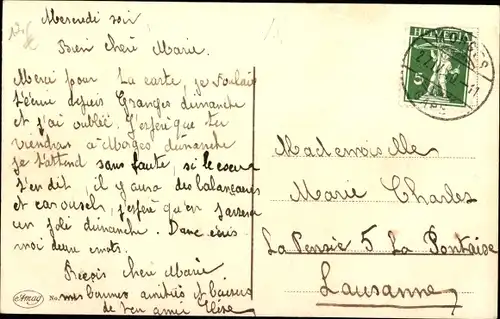 Mercredi soir
Bien chère Marie.
Merci pour La carte, je voulais
t'écrire depuis Granges dimanche
et j'ai oublié. J'espère que tu
viendras à Morges dimanche
je t'attend sans faute, si le coeur
t'en dit, il y aura des balançoires
et carousels, j'espère qu'on passera
un joli dimanche. Donc écris
moi deux mots.
Reçois chère Marie
mes bonnes amitiés & baisers
de ton amie
HELVETIA
5
Mademoiselle
Marie Charles
La Pensée 5 La Pontaise
Lausanne
Amag
No.